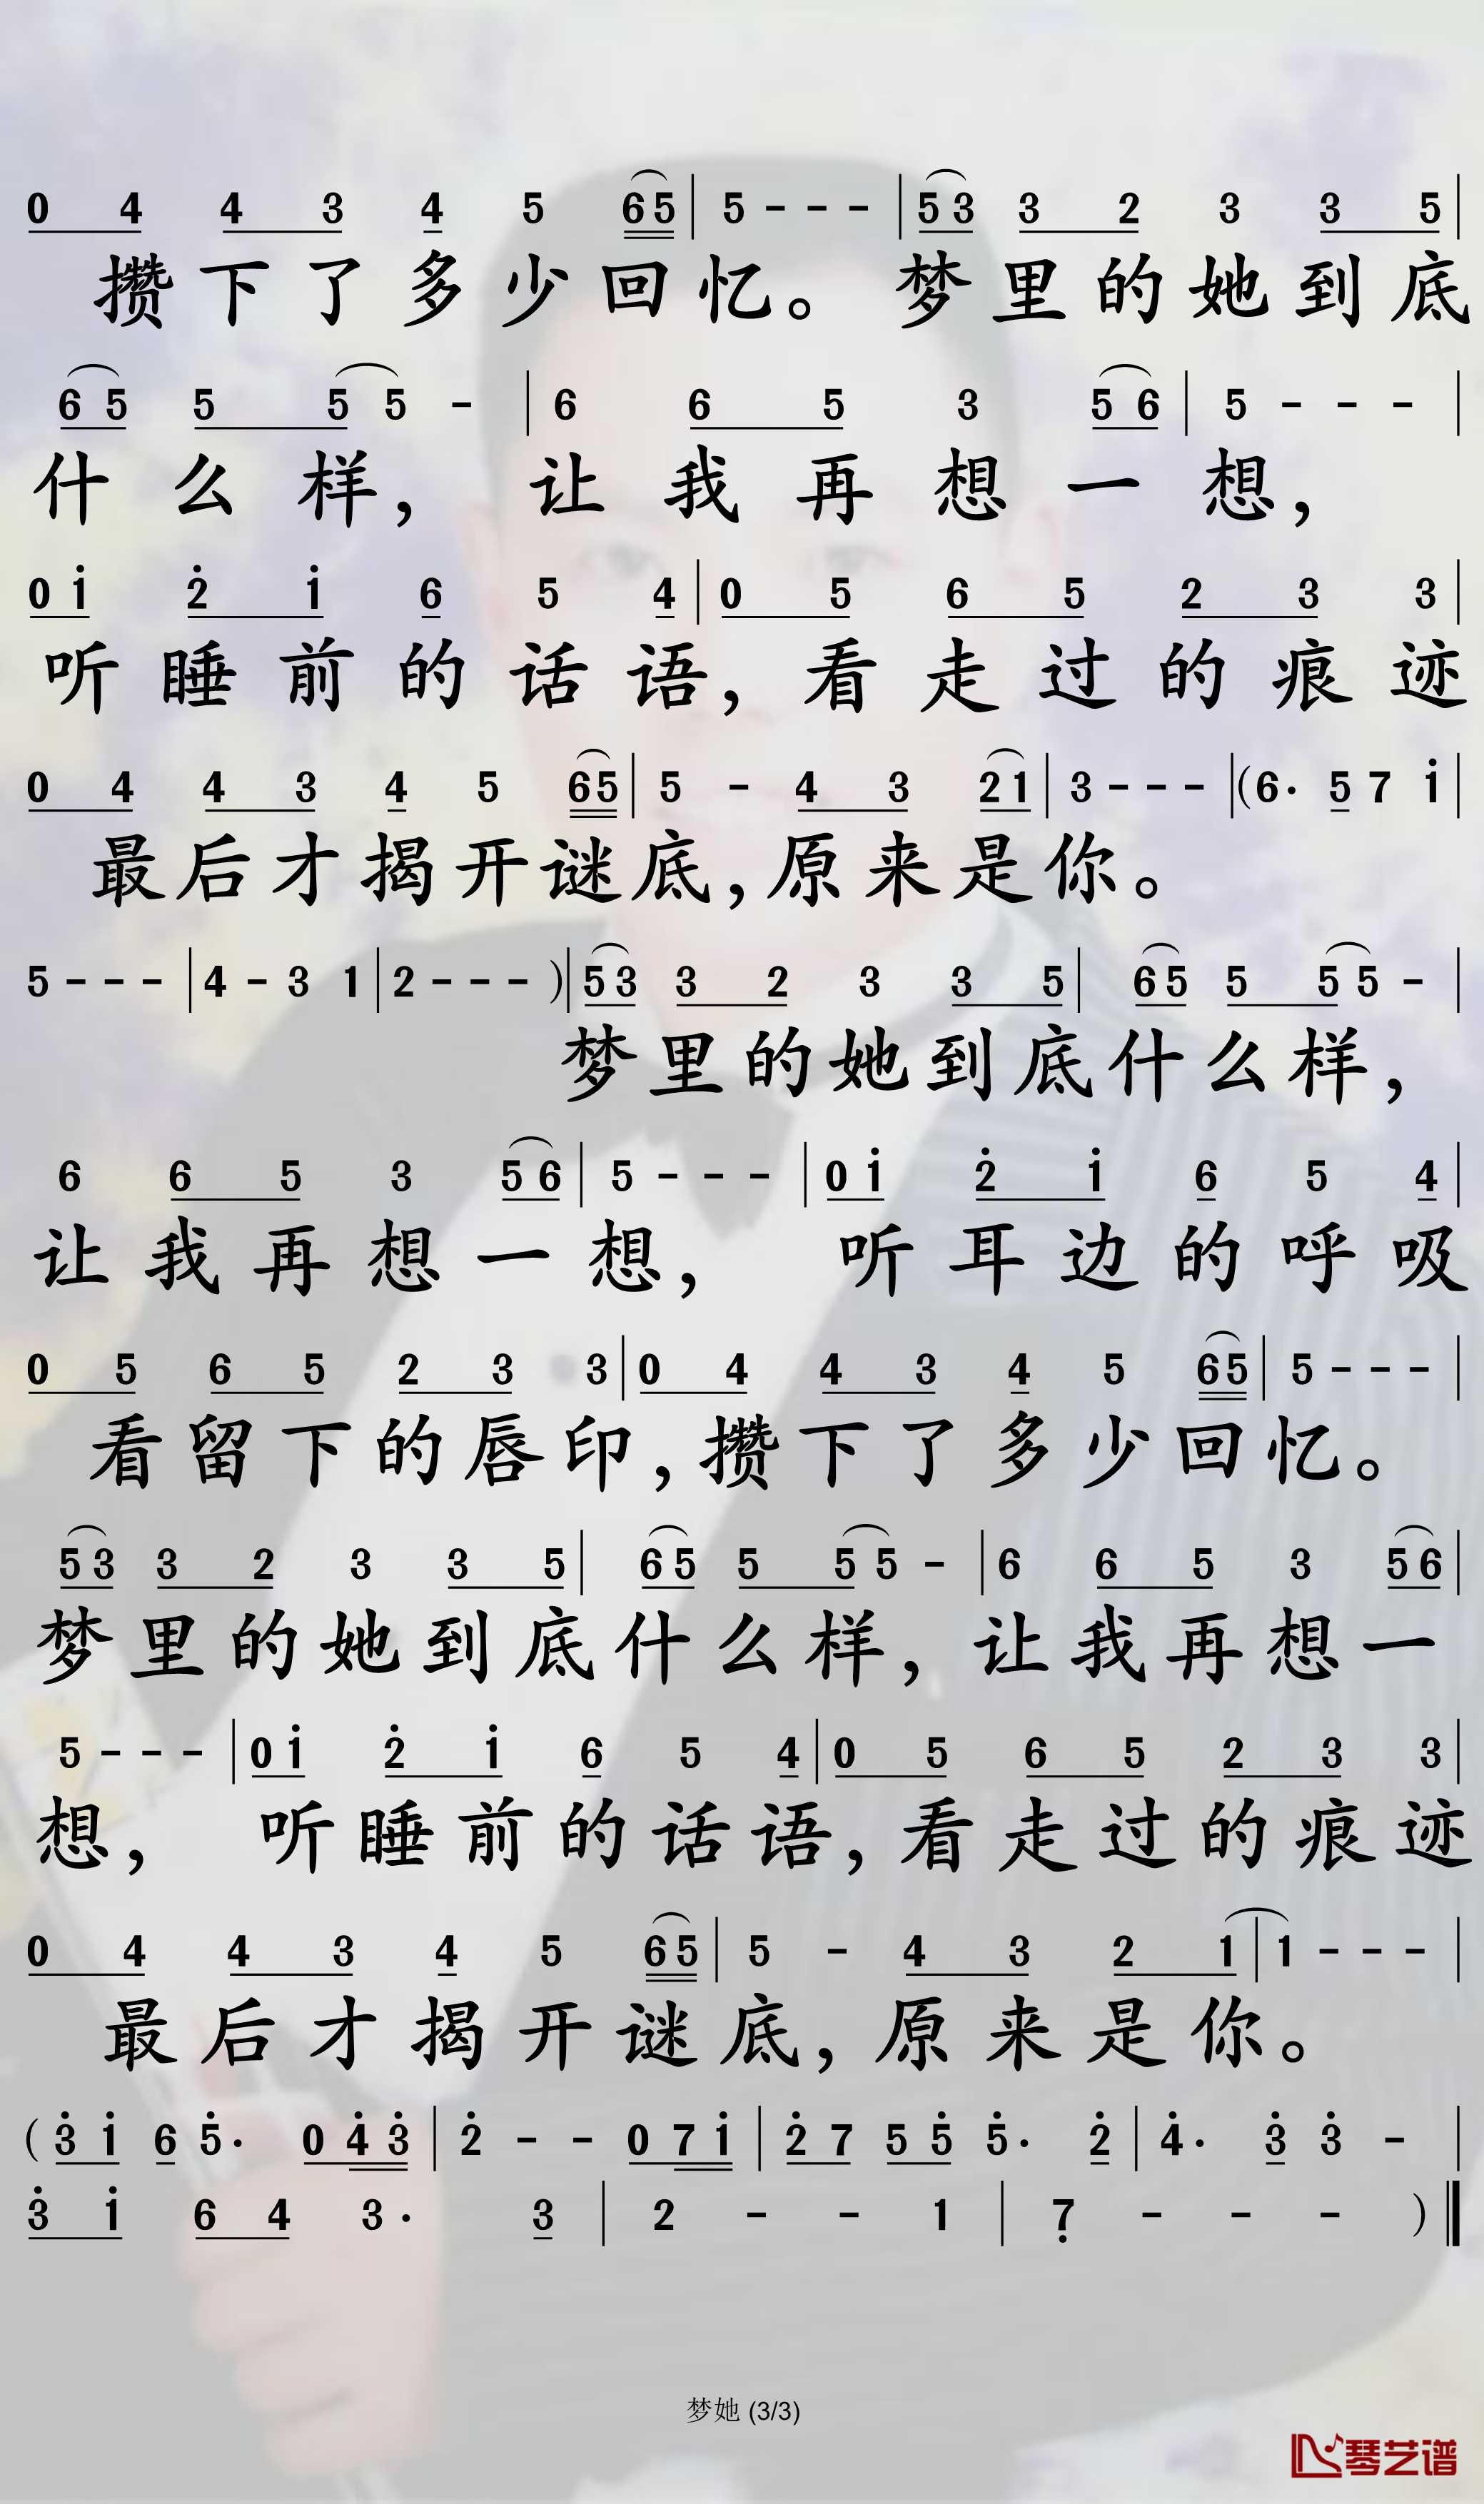 0 4 4 3 4 5 6 5 | 5 - - - | 5 3 3 2 3 3 5 |
攒下了多少回忆。梦里的她到底
6 5 5 5 5 - | 6 6 5 3 5 6 | 5 - - - |
什么样，让我再想一想，
0 i̇ 2̇ i̇ 6 5 4 | 0 5 6 5 2 3 3 |
听睡前的话语，看走过的痕迹
0 4 4 3 4 5 6 5 | 5 - 4 3 2 1 | 3 - - - | (6· 5 7 i̇ |
最后才揭开谜底，原来是你。
5 - - - | 4 - 3 1 | 2 - - - ) | 5 3 3 2 3 3 5 | 6 5 5 5 5 - |
梦里的她到底什么样，
6 6 5 3 5 6 | 5 - - - | 0 i̇ 2̇ i̇ 6 5 4 |
让我再想一想，听耳边的呼吸
0 5 6 5 2 3 3 | 0 4 4 3 4 5 6 5 | 5 - - - |
看留下的唇印，攒下了多少回忆。
5 3 3 2 3 3 5 | 6 5 5 5 5 - | 6 6 5 3 5 6 |
梦里的她到底什么样，让我再想一
5 - - - | 0 i̇ 2̇ i̇ 6 5 4 | 0 5 6 5 2 3 3 |
想，听睡前的话语，看走过的痕迹
0 4 4 3 4 5 6 5 | 5 - 4 3 2 1 | 1 - - - |
最后才揭开谜底，原来是你。
( 3̇ i̇ 6 5̇· 0 4̇ 3̇ | 2̇ - - 0 7 i̇ | 2̇ 7 5 5̇ 5̇· 2̇ | 4̇· 3̇ 3̇ - |
3̇ i̇ 6 4 3· 3 | 2 - - 1 | 7̣ - - - )
梦她 (3/3)
琴艺谱